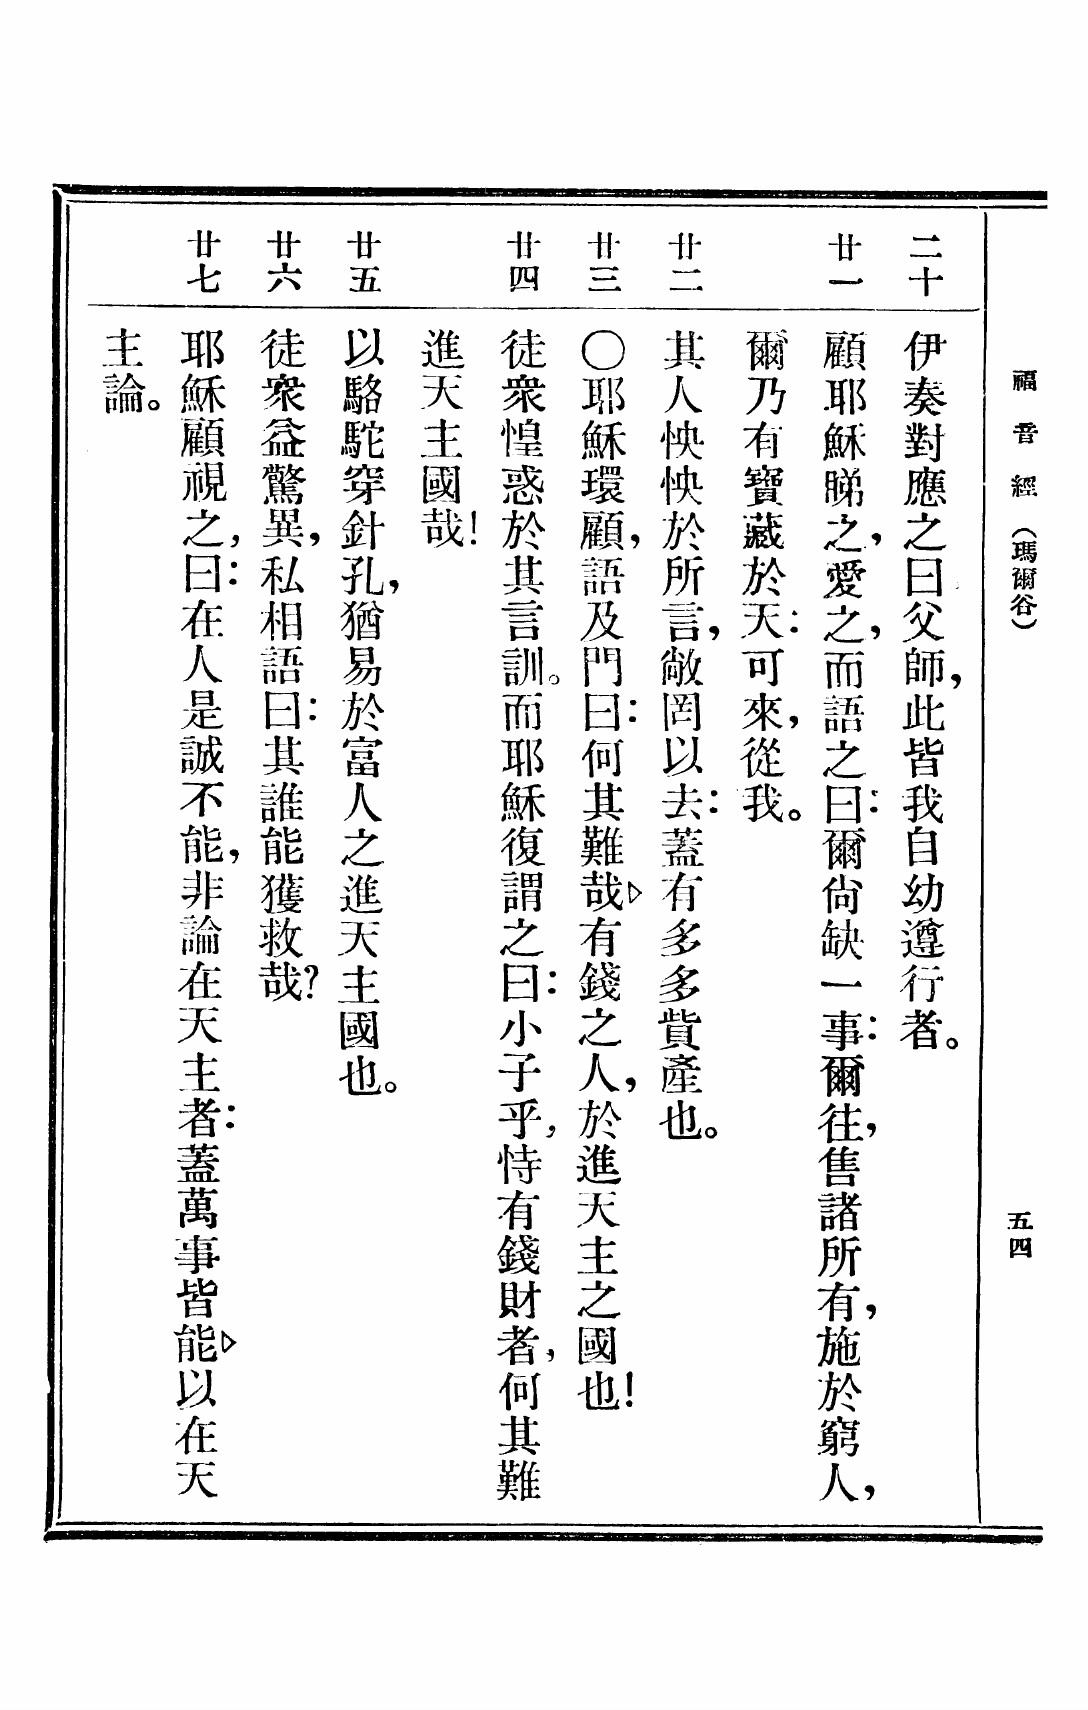 福音經（瑪爾谷）
五四
二十
伊奏對應之曰父師，此皆我自幼遵行者。
廿一
顧耶穌睇之，愛之，而語之曰：爾尙缺一事：爾往，售諸所有，施於窮人，
爾乃有寶藏於天：可來，從我。
廿二
其人怏怏於所言，敞罔以去：蓋有多多貲產也。
廿三
〇耶穌環顧，語及門曰：何其難哉▷有錢之人，於進天主之國也！
廿四
徒衆惶惑於其言訓。而耶穌復謂之曰：小子乎，恃有錢財者，何其難
進天主國哉！
廿五
以駱駝穿針孔，猶易於富人之進天主國也。
廿六
徒衆益驚異，私相語曰：其誰能獲救哉？
廿七
耶穌顧視之，曰：在人是誠不能，非論在天主者：蓋萬事皆能▷以在天
主論。